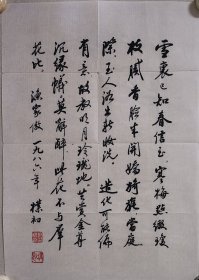 雪里已知春信至寒梅点缀琼
枝腻香脸半开娇旖旎当庭
际玉人浴出新妆洗 造化可能偏
有意故教明月玲珑地共赏金尊
沉绿蚁莫辞醉此花不与群
花比 渔家傲 一九八六年 朴初